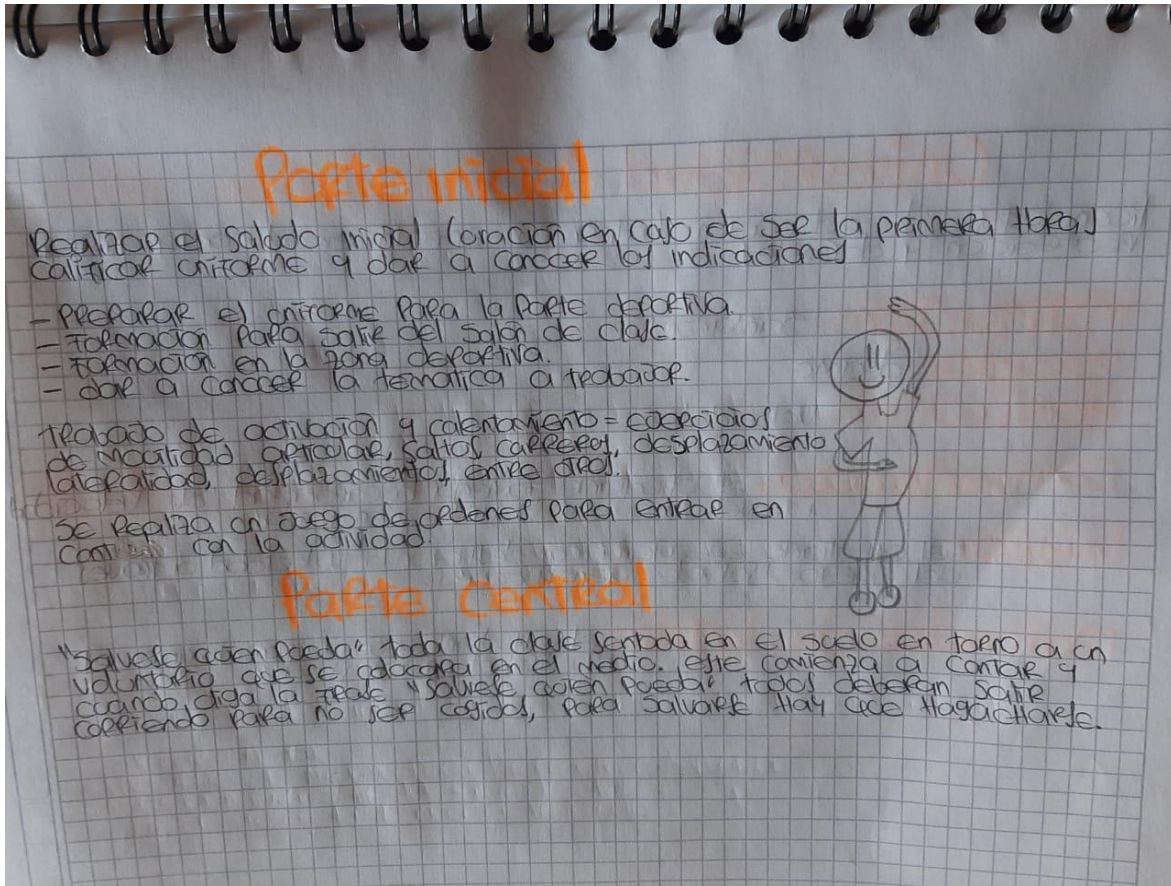 Parte inicial
Realizar el saludo inicial (oración en caso de ser la primera Hora)
calificar uniforme y dar a conocer las indicaciones
- Preparar el uniforme para la parte deportiva.
- Formación para salir del salón de clase.
- Formación en la zona deportiva.
- dar a conocer la temática a trabajar.
trabajo de activación y calentamiento = ejercicios
de movilidad articular, saltos carreras, desplazamiento
lateralidad, desplazamientos, entre otros.
Se Realiza un juego de ordenes para entrar en
con la actividad.
Parte Central
"Salvese quien pueda" toda la clase sentada en el suelo en torno a un
voluntario que se colocara en el medio. este comienza a contar y
cuando diga la frase "Salvese quien pueda" todos deberan salir
corriendo para no ser cogidos, para salvarse Hay que HagacHarse.